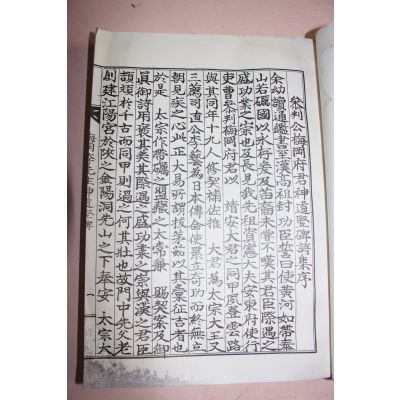 參判公梅岡府君神道竪碑詩集序
余幼讀通鑑書至漢高祖封功臣誓曰使黃河如帶泰
山若礪國以永存爰及苗裔未嘗不嘆其君臣際遇之
盛功業之崇也及長見我先祖資憲大夫安東府使行
吏曹參判梅岡府君以靖安大君之同甲夙登雲路
與其同年十九人修契補佐推 大君為 太宗大王又
薦司直公李藝為日本傳命使累立奇功而終無
朝見疾之心此正大易所謂拔茅茹以其彙征吉者也
於是 太宗作帶礪盟藏之太常兼 賜契案及御
眞御詩用褒其美其際遇之盛功業之崇與漢之君臣
頡頏於千古而同甲則過之何其壯也故門中先父老
創建江陽宮於陜之金陽洞先山之下奉安 太宗大
梅岡 先生神道竪碑
一